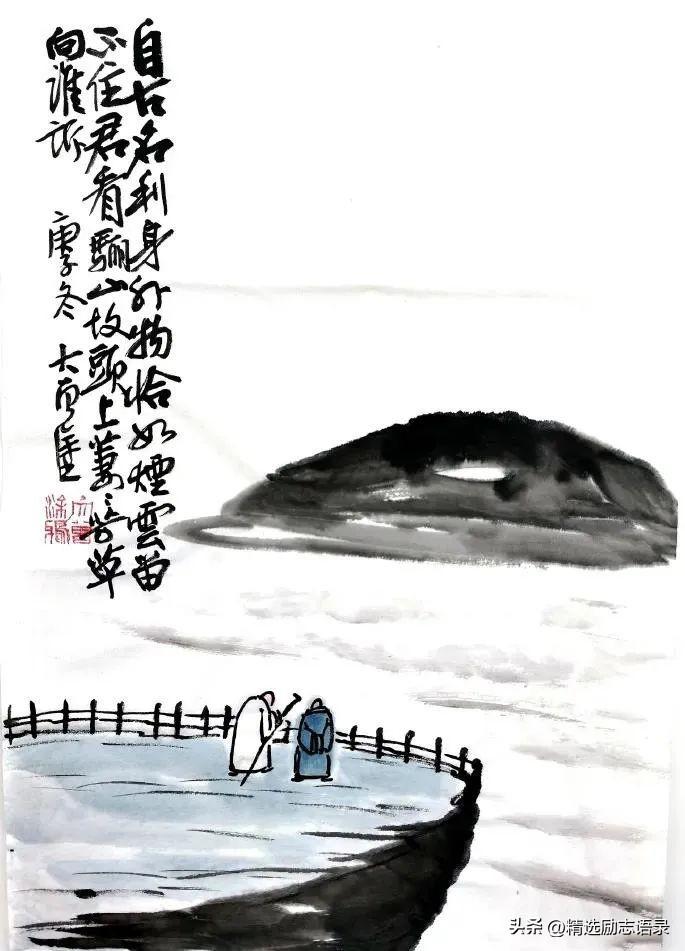 自古名利身外物恰如煙雲留
不住君看驪山坟頭上萋草
向誰訴
庚子冬
头条 @精选励志语录